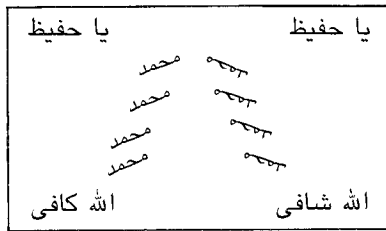 يا حفيظ يا حفيظ
محمد محمد
محمد محمد
محمد محمد
محمد محمد
الله شافى الله كافى